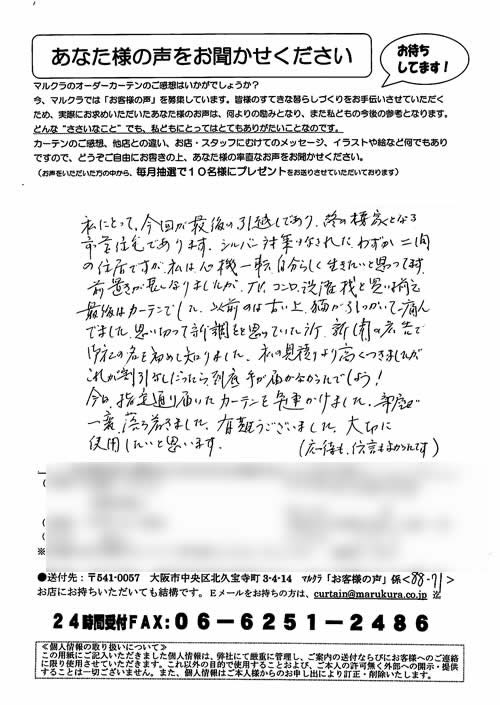 あなた様の声をお聞かせください
お待ち
してます!
マルクラのオーダーカーテンのご感想はいかがでしょうか?
今、マルクラでは「お客様の声」を募集しています。皆様のすてきな暮らしづくりをお手伝いさせていただく
ため、実際にお求めいただいたあなた様のお声は、何よりの励みとなり、また私どもの今後の参考となります。
どんな“ささいなこと”でも、私どもにとってはとてもありがたいことなのです。
カーテンのご感想、他店との違い、お店・スタッフにむけてのメッセージ、イラストや絵など何でもあり
ですので、どうぞご自由にお書きの上、あなた様の率直なお声をお聞かせください。
(お声をいただいた方の中から、毎月抽選で10名様にプレゼントをお送りさせていただいております)
私にとって、今回が最後の引越しであり、終の棲家となる
市営住宅であります。シルバー対策のなされた、わずか二間
の住居ですが、私は心機一転自分らしく生きたいと思ってます。
前置きが長くなりましたが、TV、コンロ、洗濯機と買い揃え
最後はカーテンでした。以前のは古い上、猫が引っかいて痛ん
でました。思い切って新調をと思っていた所、新聞の広告で
御社の名を初めて知りました。私の見積りより高くつきましたが
これが割引なしだったら到底手が届かなかったでしょう!
今日、指定通り届いたカーテンを早速かけました。部屋が
一変、落ち着きました。有難うございました。大切に
使用したいと思います。
(応待も、伝言もよかったです)
※
●送付先:〒541-0057 大阪市中央区北久宝寺町3-4-14 マルクラ「お客様の声」係<88-71>
お店にお持ちいただいても結構です。Eメールをお持ちの方は、curtain@marukura.co.jp ※
24時間受付FAX:06-6251-2486
≪個人情報の取り扱いについて≫
この用紙にご記入いただきました個人情報は、弊社にて厳重に管理し、ご案内の送付ならびにお客様へのご連絡
に限り使用させていただきます。これ以外の目的で使用することおよび、ご本人の許可無く外部への開示・提供
することは一切ございません。また、個人情報はご本人様からのお申し出により訂正・削除いたします。